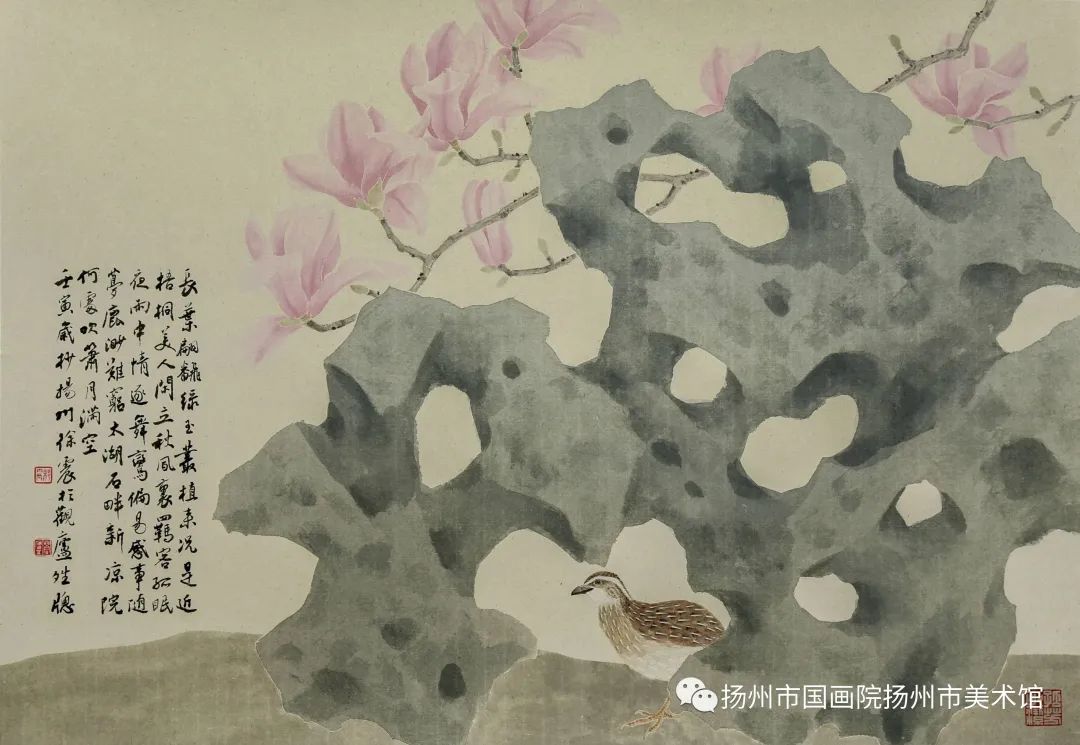 長葉翩翻綠玉叢植來況是近
梧桐美人閑立秋風裏羈客孤眠
夜雨中情逐舞鸞偏易感事隨
夢鹿渺難窮太湖石畔新涼院
何處吹簫月滿空
壬寅歲杪揚州徐震於觀廬牲牕
扬州市国画院扬州市美术馆